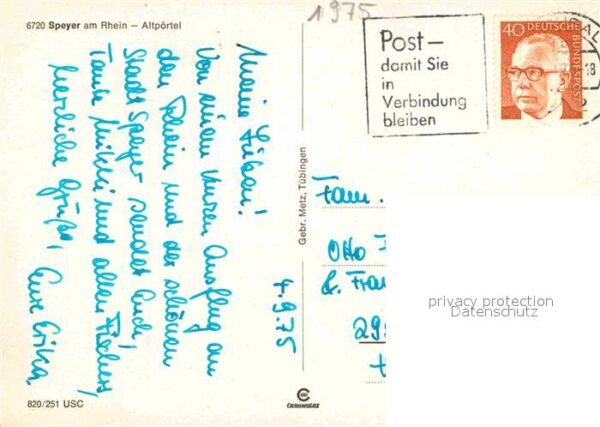 1975
6720 Speyer am Rhein – Altpörtel
Post—
damit Sie
in
Verbindung
bleiben
40
DEUTSCHE
BUNDESPOST
Meine Lieben!
Von einem kurzen Ausflug an
den Rhein und der schönen
Stadt Speyer sendet Euch,
Tante und allen
herzliche Grüße,
Eure Erika
4.9.75
Gebr. Metz, Tübingen
Fam.
Otto
29
privacy protection
Datenschutz
820/251 USC
CHROMOLUX